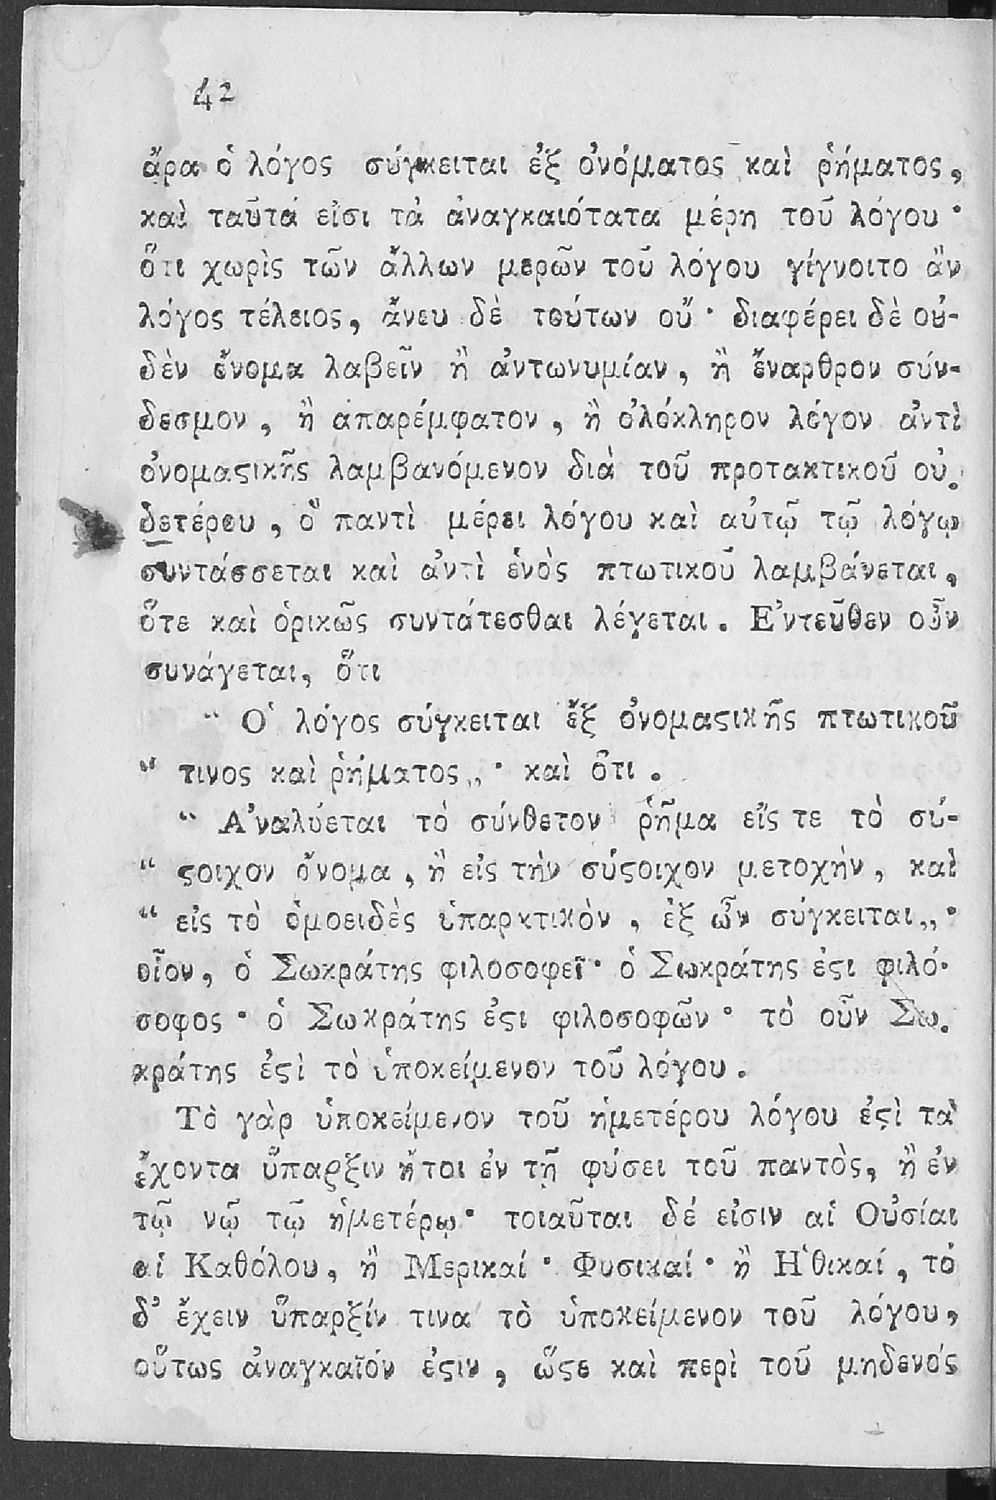 42
ἄρα ὁ λόγος σύγκειται ἐξ ὀνόματος καὶ ῥήματος,
καὶ ταῦτά εἰσι τὰ ἀναγκαιότατα μέρη τοῦ λόγου·
ὅτι χωρὶς τῶν ἄλλων μερῶν τοῦ λόγου γίγνοιτο ἂν
λόγος τέλειος, ἄνευ δὲ τούτων οὔ· διαφέρει δὲ οὐ-
δὲν ὄνομα λαβεῖν ἢ ἀντωνυμίαν, ἢ ἔναρθρον σύν-
δεσμον, ἢ ἀπαρέμφατον, ἢ ὁλόκληρον λόγον ἀντὶ
ὀνομαϛικῆς λαμβανόμενον διὰ τοῦ προτακτικοῦ οὐ-
δετέρου, ὃ παντὶ μέρει λόγου καὶ αὐτῷ τῷ λόγῳ
συντάσσεται καὶ ἀντὶ ἑνὸς πτωτικοῦ λαμβάνεται,
ὅτε καὶ ὁρικῶς συντάτεσθαι λέγεται. Ἐντεῦθεν οὖν
συνάγεται, ὅτι
“ Ὁ λόγος σύγκειται ἔξ ὀνομαϛικῆς πτωτικοῦ
“ τινος καὶ ῥήματος„· καὶ ὅτι.
“ Ἀναλύεται τὸ σύνθετον ῥῆμα εἴς τε τὸ σύ-
“ ϛοιχον ὄνομα, ἢ εἰς τὴν σύϛοιχον μετοχὴν, καὶ
“ εἰς τὸ ὁμοειδὲς ὑπαρκτικὸν, ἐξ ὧν σύγκειται„·
οἷον, ὁ Σωκράτης φιλοσοφεῖ· ὁ Σωκράτης ἐϛι φιλό-
σοφος· ὁ Σωκράτης ἐϛι φιλοσοφῶν· τὸ οὖν Σω-
κράτης ἐϛὶ τὸ ὑποκείμενον τοῦ λόγου.
Τὸ γὰρ ὑποκείμενον τοῦ ἡμετέρου λόγου ἐϛὶ τὰ
ἔχοντα ὕπαρξιν ἤτοι ἐν τῇ φύσει τοῦ παντὸς, ἢ ἐν
τῷ νῷ τῷ ἡμετέρῳ· τοιαῦται δέ εἰσιν αἱ Οὐσίαι
αἱ Καθόλου, ἢ Μερικαί· Φυσικαί· ἢ Ἠθικαί, τὸ
δ’ ἔχειν ὕπαρξίν τινα τὸ ὑποκείμενον τοῦ λόγου,
οὕτως ἀναγκαῖόν ἐϛιν, ὥϛε καὶ περὶ τοῦ μηδενός